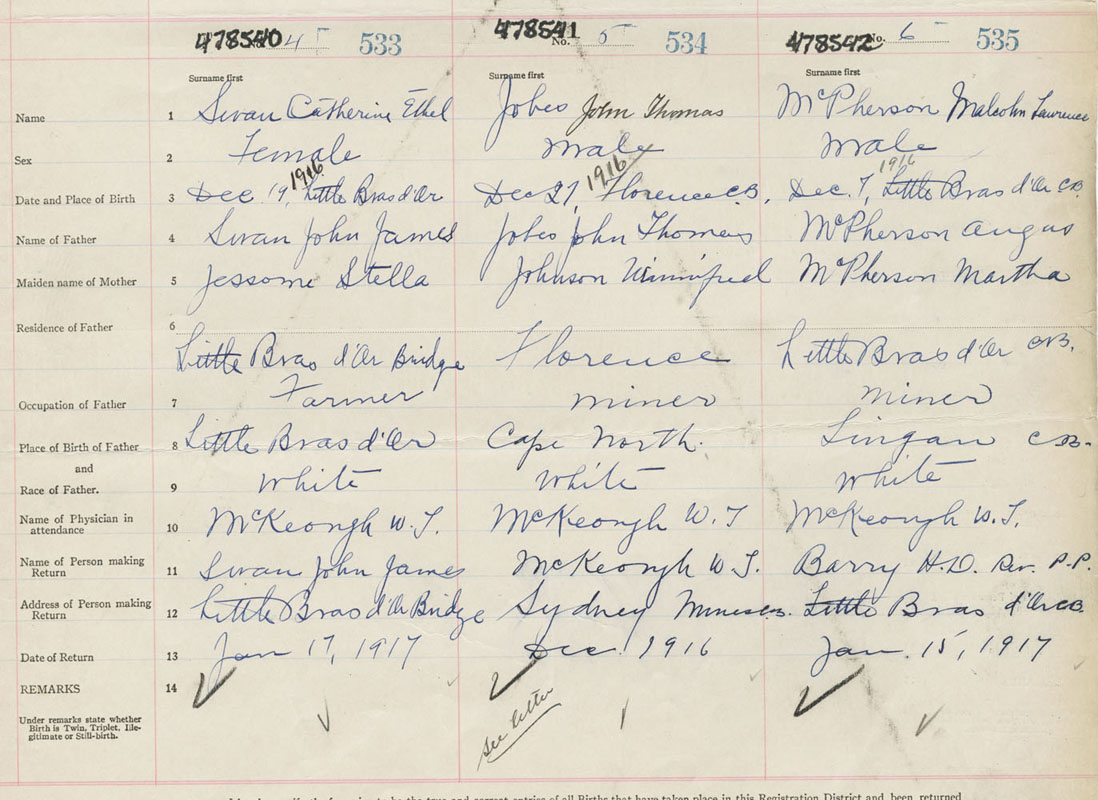 478540 4 533 478541 No. 5 534 478542 No. 6 535
Surname first Surname first Surname first
Name 1 Swan Catherine Ethel Jobes John Thomas McPherson Malcolm Lawrence
Sex 2 Female Male Male
1916 1916 1916
Date and Place of Birth 3 Dec. 19, Little Bras d'Or Dec 27, Florence C.B. Dec. 7, Little Bras d'Or CB.
Name of Father 4 Swan John James Jobes John Thomas McPherson Angus
Maiden name of Mother 5 Jessome Stella Johnson Winnifred McPherson Martha
Residence of Father 6
Little Bras d'Or Bridge Florence Little Bras d'Or C.B.
Occupation of Father 7 Farmer miner miner
Place of Birth of Father 8 Little Bras d'Or Cape North. Lingan C.B.
and
Race of Father. 9 White White White
Name of Physician in
attendance 10 McKeough W. J. McKeough W. J McKeough W. J.
Name of Person making
Return 11 Swan John James McKeough W. J. Barry H.D. Rev. P.P.
Address of Person making
Return 12 Little Bras d'Or Bridge Sydney Mines C.B. Little Bras d'Or C.B.
Date of Return 13 Jan 17, 1917 Dec. 1916 Jan. 15, 1917
REMARKS 14
Under remarks state whether
Birth is Twin, Triplet, Ille-
gitimate or Still-birth.
see letter
entries of all Births that have taken place in this Registration District and been returned